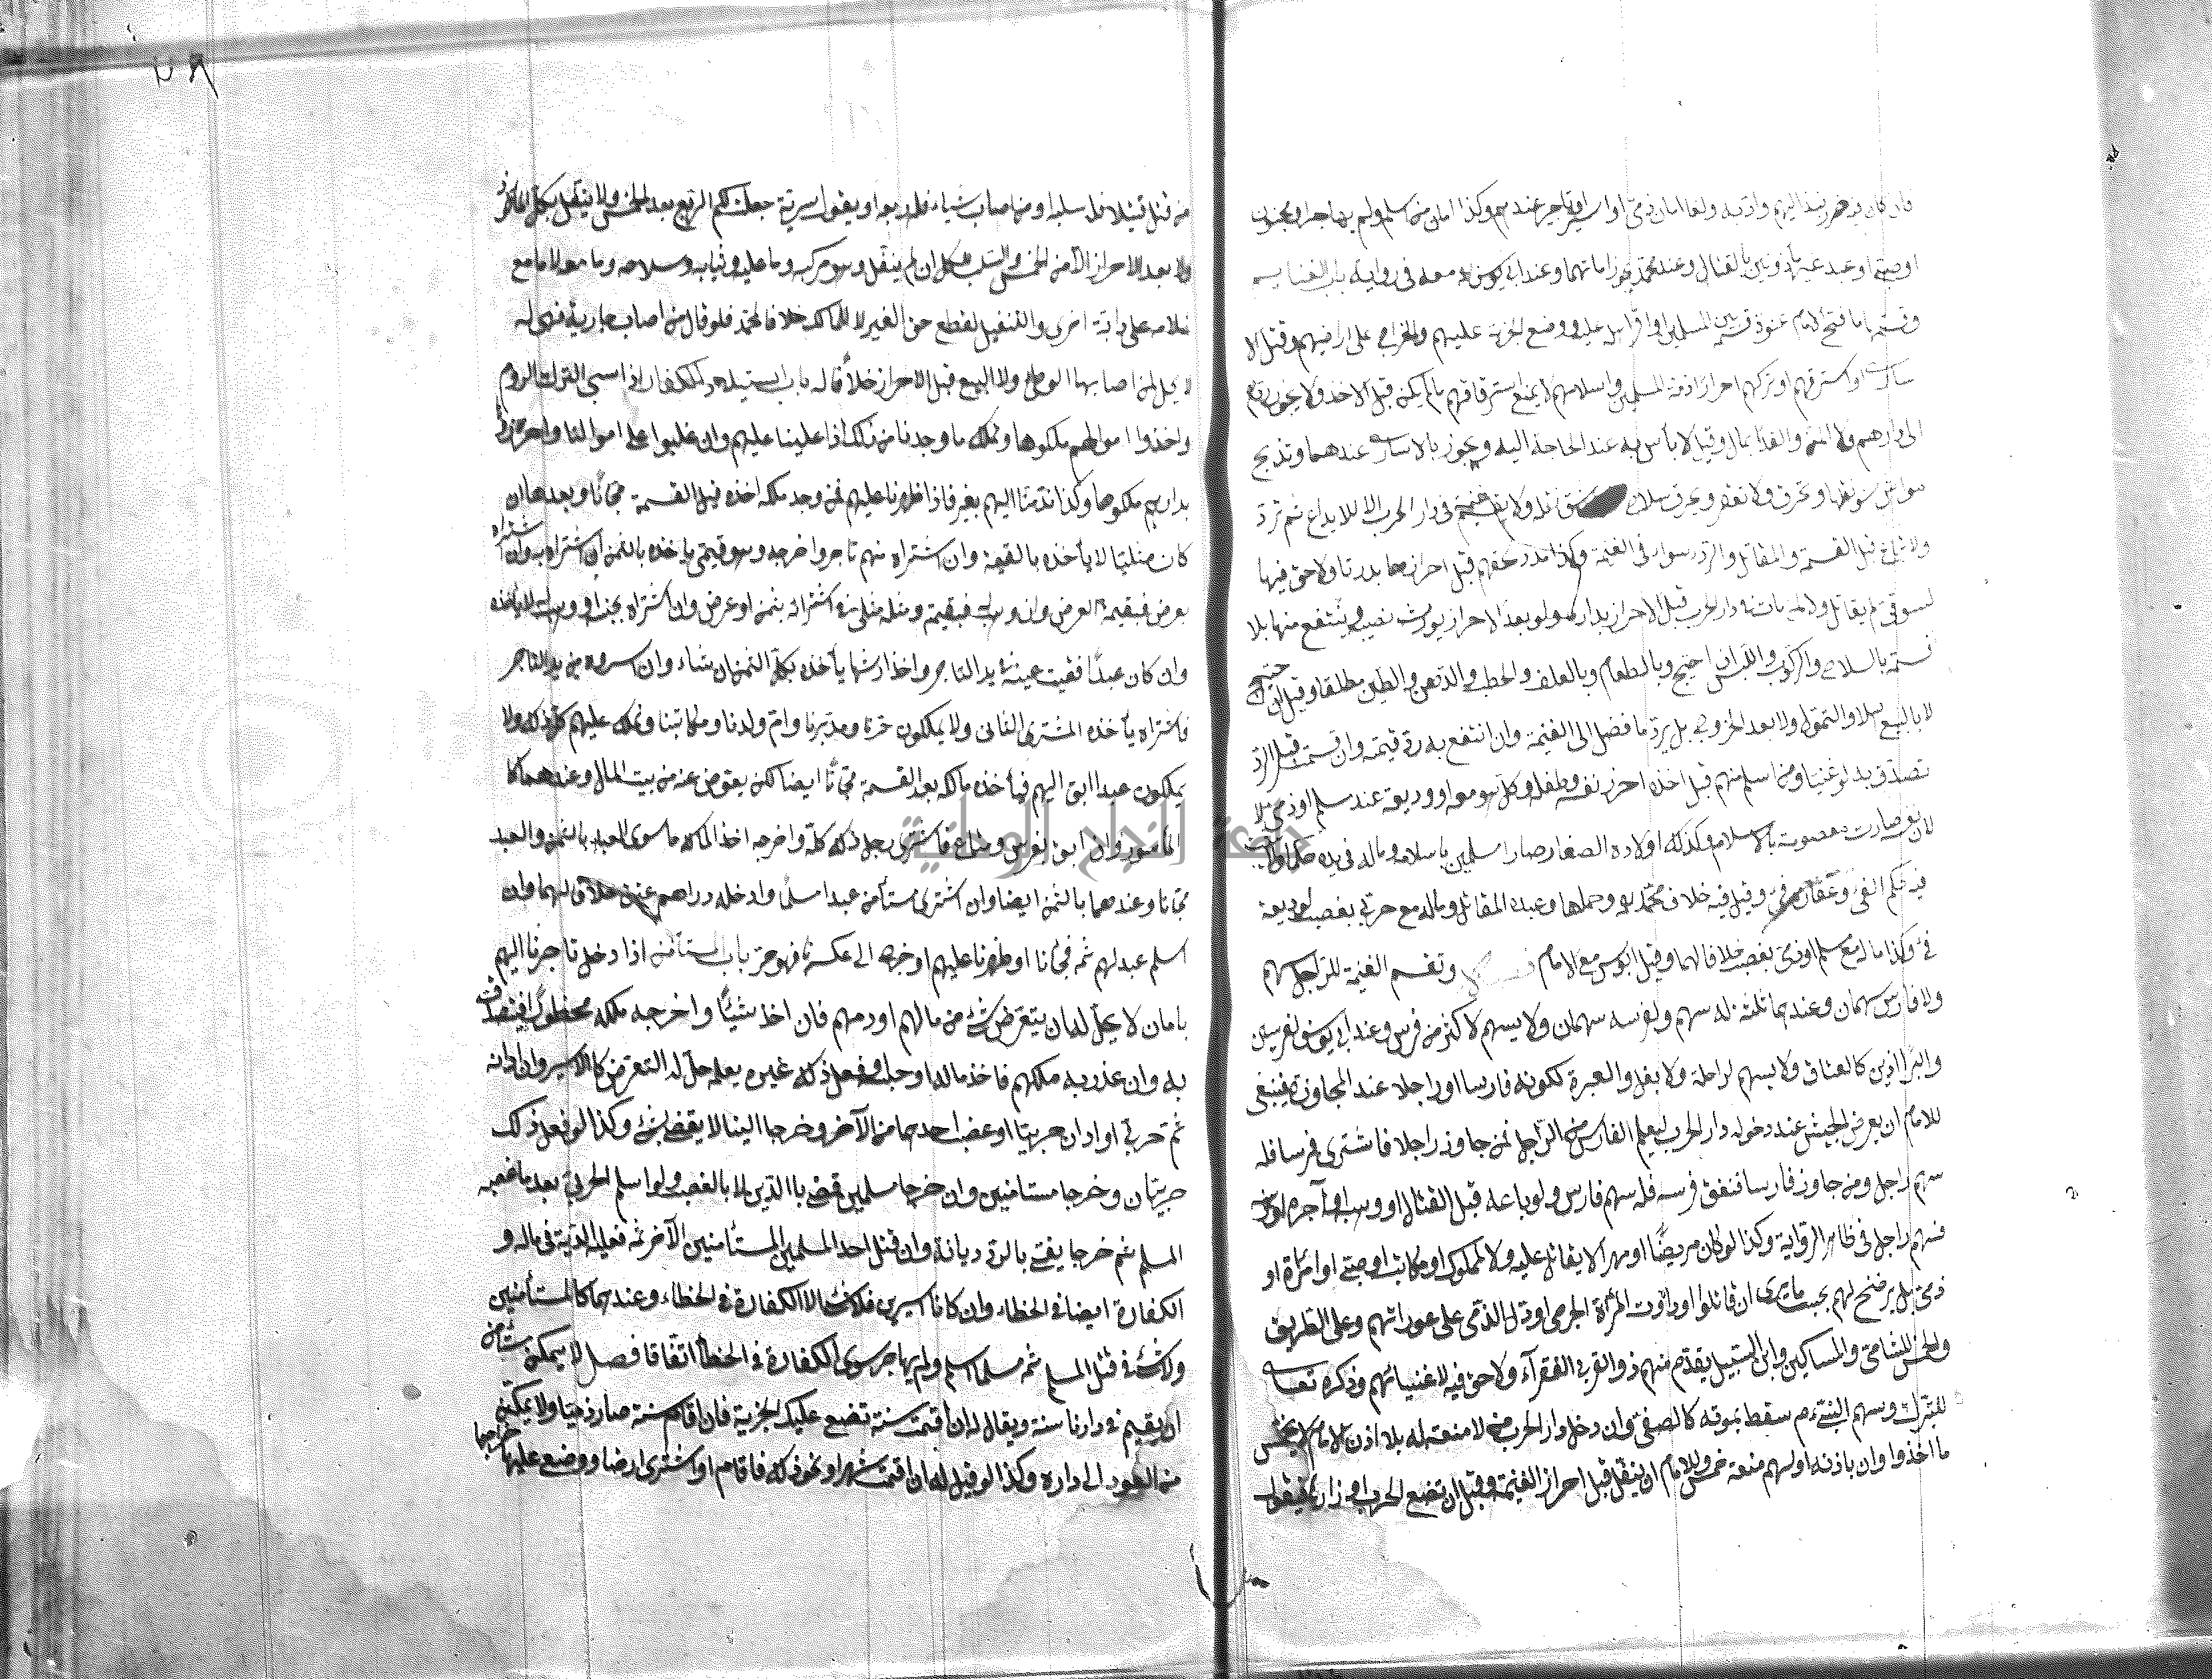 فان كان فيه ضرر نبذ اليهم وادبه ولغا امان ذمي او اسير او تاجر عندهم وكذا امان من اسلم ولم يهاجر او مجنون
او صبي او عبد غير مأذونين بالقتال وعند محمد يجوز امانهما وعند ابي يوسف معه في رواية باب الغنايم
وقسمتها ما فتح الامام عنوة قسمه بين المسلمين او اقر اهله عليه ووضع الجزية عليهم والخراج على اراضيهم وقتل الا
سارى او استرقهم او تركهم احرارا ذمة للمسلمين واسلامهم لا يمنع استرقاقهم ما لم يكن قبل الاخذ ولا يجوز ردهم
الى دارهم ولا المن والفداء بمال وقيل لا بأس به عند الحاجة اليه ويجوز بالاسارى عندهما وتذبح
مواش شق نقلها وتحرق ولا تعقر ويحرق سلاح شق نقله ولا يقسم غنيمة في دار الحرب الا للايداع ثم ترد
ولا تباع قبل القسمة والمقاتل والردء سواء في الغنيمة وكذا مدد لحقهم قبل احرازها بدارنا ولا حق فيها
لسوقي لم يقاتل ولا لمن مات في دار الحرب قبل الاحراز بدارنا ولو بعد الاحراز يورث نصيبه وينتفع منها بلا
قسمة بالسلاح والركوب واللبس ان احتيج وبالطعام وبالعلف والحطب والدهن والطيب مطلقا وقيل ان احتيج
لا بالبيع اصلا والتمول ولا بعد الخروج بل يرد ما فضل الى الغنيمة وان انتفع به رد قيمته وان قسمت قبل الرد
تصدق به لو غنيا ومن اسلم منهم قبل اخذه احرز نفسه وطفله وكل ما هو معه او وديعة عند مسلم او ذمي
لان نفسه صارت معصومة بالاسلام وكذلك اولاده الصغار صاروا مسلمين باسلامه وماله في يده
في حكم الفئ وعقاره فئ وقيل فيه خلاف محمد وحملها وعبده المقاتل وماله مع حربي بغصب او وديعة
فئ وكذا ماله مع مسلم او ذمي بغصب خلافا لهما وقيل ابو يوسف مع الامام فصل وتقسم الغنيمة للراجل سهم
وللفارس سهمان وعندهما ثلثة له سهم ولفرسه سهمان ولا يسهم لاكثر من فرس وعند ابي يوسف لفرسين
والبراذين كالعتاق ولا يسهم لراحلة ولا بغل والعبرة لكونه فارسا او راجلا عند المجاوزة فينبغي
للامام ان يعرض الجيش عند دخوله دار الحرب ليعلم الفارس من الراجل فمن جاوز راجلا فاشترى فرسا فله
سهم راجل ومن جاوز فارسا فنفق فرسه فله سهم فارس ولو باعه قبل القتال او وهبه او آجره او رهنه
فسهم راجل في ظاهر الرواية وكذا لو كان مريضا او مهرا لا يقاتل عليه ولا لمملوك او مكاتب او صبي او امرأة او
ذمي بل يرضخ لهم بحسب ما يرى ان قاتلوا او داوت المرأة الجرحى او دل الذمي على عوراتهم وعلى الطريق
والخمس لليتامى والمساكين وابن السبيل يقدم منهم ذوو القربى الفقراء ولا حق فيه لاغنيائهم وذكره تعالى
للتبرك وسهم النبي عم سقط بموته كالصفي وان دخل دار الحرب من لا منعة له بلا اذن الامام لا يخمس
ما اخذوا وان باذنه او لهم منعة خمس وللامام ان ينفل قبل احراز الغنيمة وقبل ان تضع الحرب اوزارها فيقول
من قتل قتيلا فله سلبه او من اصاب شيأ فله ربعه او يقول لسرية جعلت لكم الربع بعد الخمس ولا ينفل بكل المأخوذ
ولا بعد الاحراز الا من الخمس والسلب للكل ان لم ينفل وهو مركبه وما عليه وثيابه وسلاحه وما معه لا ما مع
غلامه على دابة اخرى والتنفيل لقطع حق الغير لا للملك خلافا لمحمد فلو قال من اصاب جارية فهي له
لا يحل لمن اصابها الوطئ ولا البيع قبل الاحراز خلافا له باب استيلاء الكفار اذا سبى الترك الروم
واخذوا اموالهم ملكوها ونملك ما وجدنا من ذلك اذا غلبنا عليهم وان غلبوا على اموالنا واحرزوها
بدارهم ملكوها وكذا ندّ منا اليهم بعير فاذا ظهرنا عليهم فمن وجد ملكه اخذه قبل القسمة مجانا وبعدها ان
كان مثليا لا يأخذه بالقيمة وان اشتراه منهم تاجر واخرجه وهو قيمي يأخذه بالثمن ان اشتراه به وان اشتراه
بعرض فبقيمة العرض وان وهب فبقيمته ومثله مثلي اشتراه بثمن او عرض وان اشتراه بجنسه او وهب لا يأخذه
وان كان عبدا ففقئت عينه في يد التاجر واخذ ارشها يأخذه بكل الثمن ان شاء وان اسروه من يد التاجر
فاشتراه يأخذه المشتري الثاني ولا يملكون حرنا ومدبرنا وام ولدنا ومكاتبنا ونملك عليهم كل ذلك ولا
يملكون عبدا ابق اليهم فيأخذه مالكه بعد القسمة مجانا ايضا لكن يعوض عنه من بيت المال وعندهما كا
لمأسور وان ابق بفرس ومتاع فاشترى رجل ذلك كله واخرجه اخذ المالك ما سوى العبد بالثمن والعبد
مجانا وعندهما بالثمن ايضا وان اشترى مستأمن عبدا مسلما وادخله دارهم عتق خلافا لهما وان
اسلم عبد لهم ثمه فجاءنا او ظهرنا عليهم او خرج الى عسكرنا فهو حر باب المستأمن اذا دخل تاجرنا اليهم
بامان لا يحل له ان يتعرض لشئ من مالهم او دمهم فان اخذ شيئا واخرجه ملكه محظورا فيتصدق
به وان غدر به ملكهم فاخذ ماله او حبسه او فعل ذلك غيره بعلمه حل له التعرض كالاسير وان ادانه
ثم حربي او ادان حربيا او غصب احدهما من الآخر وخرجا الينا لا يقضى بشئ وكذا لو فعل ذلك
حربيان وخرجا مستأمنين وان خرجا مسلمين قضي بالدين لا بالغصب ولو اسلم الحربي بعد ما غصبه
المسلم ثم خرجا يفتى بالرد ديانة وان قتل احد المسلمين المستأمنين الآخر ثمه فعليه الدية في ماله و
الكفارة ايضا في الخطاء وان كانا اسيرين فلا شئ الا الكفارة في الخطاء وعندهما كالمستأمنين
ولا شئ في قتل المسلم ثمه مسلما اسلم ولم يهاجر سوى الكفارة في الخطأ اتفاقا فصل لا يمكن مستأمن
ان يقيم في دارنا سنة ويقال له ان اقمت سنة نضع عليك الجزية فان اقام سنة صار ذميا ولا يمكن
من العود الى داره وكذا لو قيل له ان اقمت شهرا او نحو ذلك فاقام او اشترى ارضا ووضع عليه خراجها